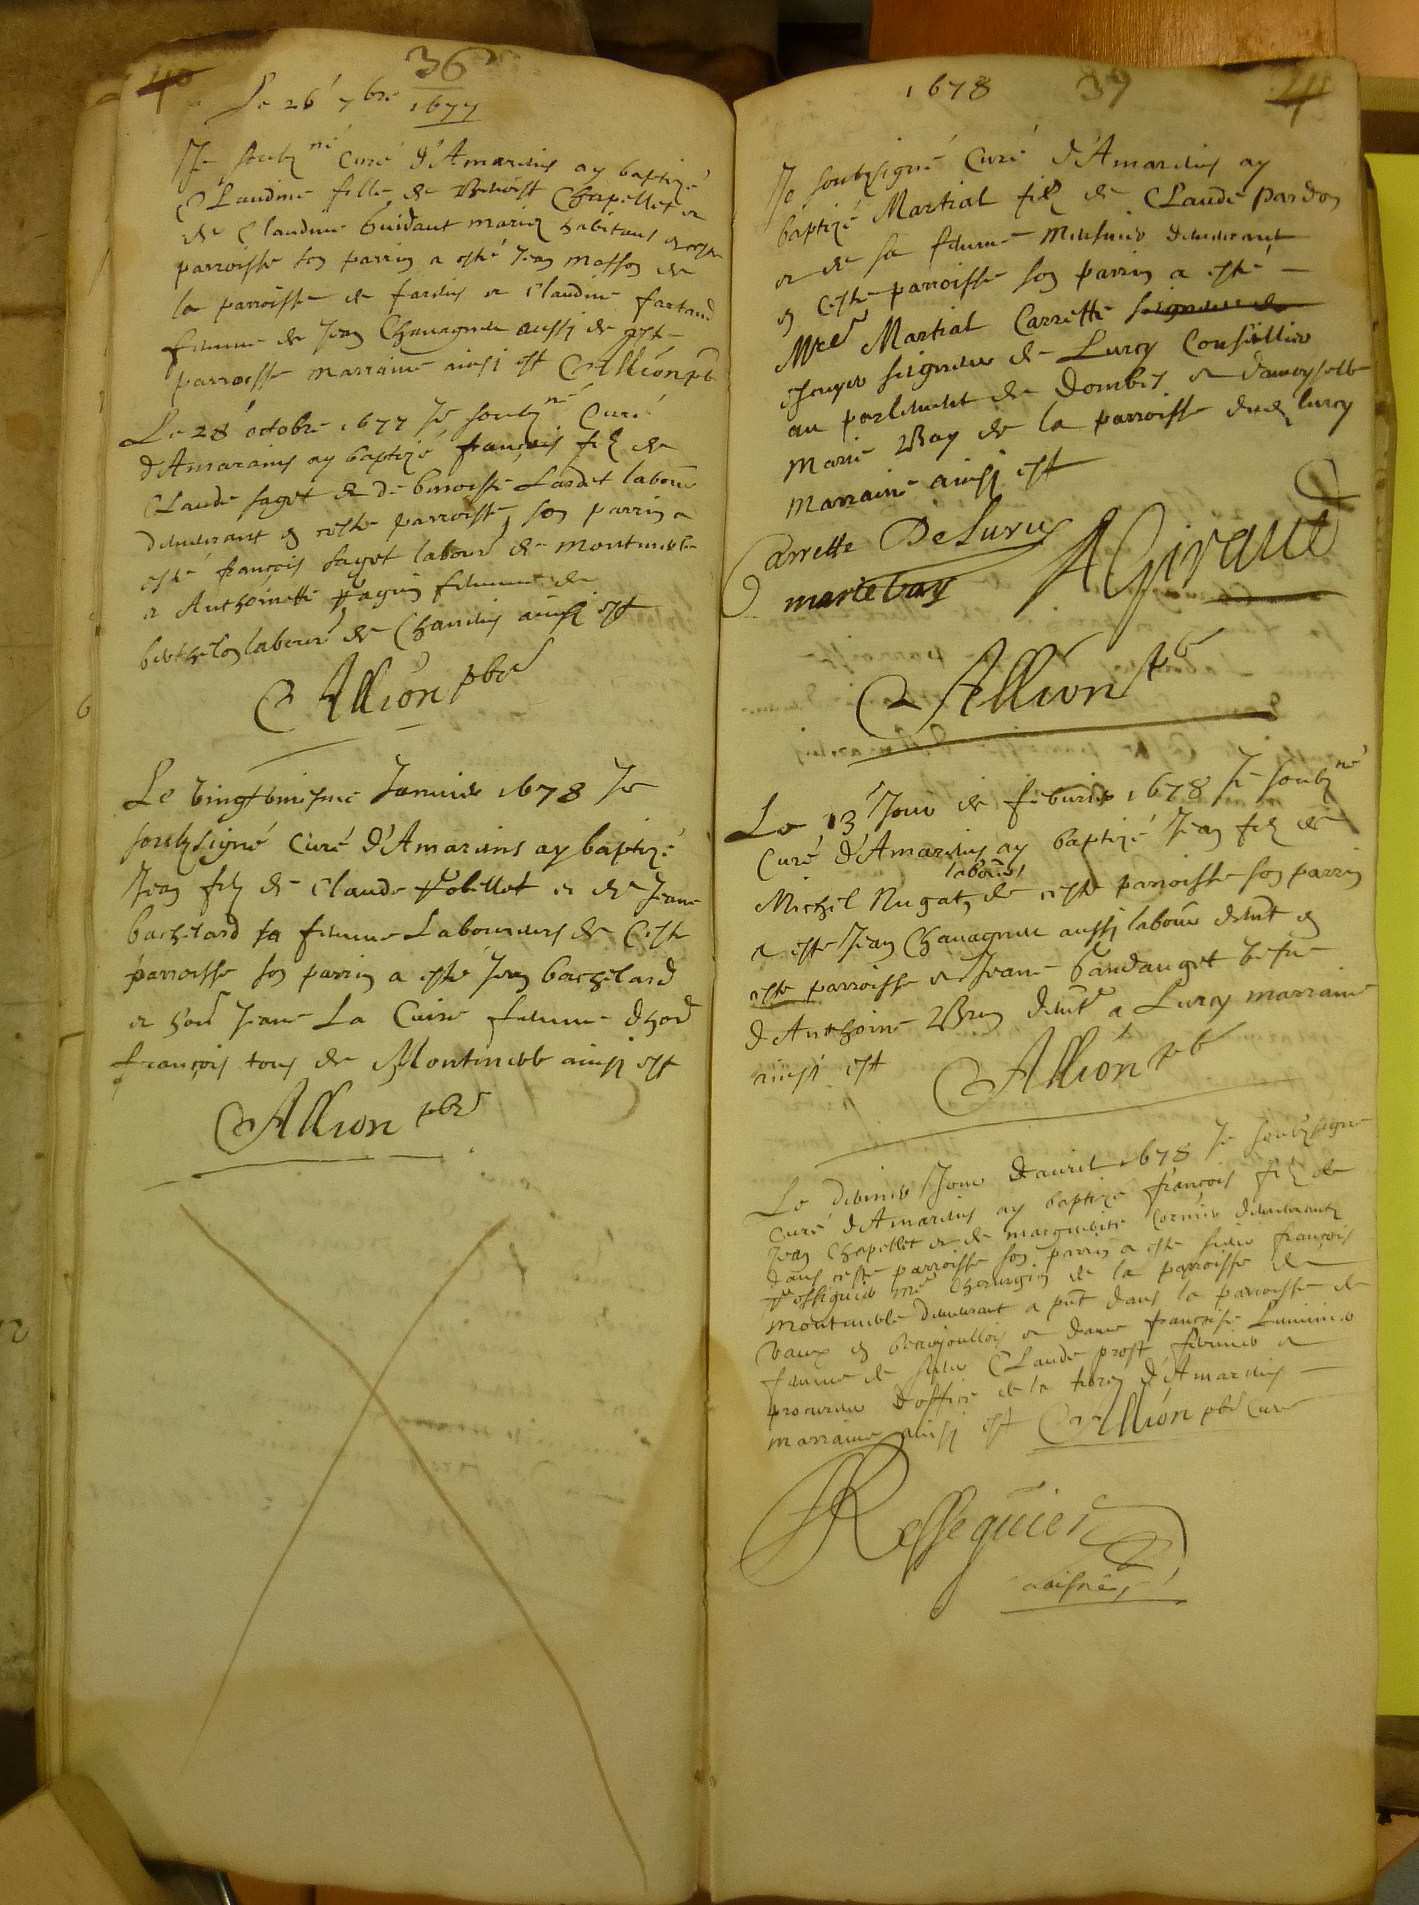 36
Le 26 7bre 1677
Je soubz né Curé d'Amareins ay baptizé
Claudine fille de Benoist Chapellet et
de Claudine Guidaut mariez habitans en ceste
parroisse son parrin a esté Jean Masson de
la parroisse de fareins et Claudine
femme de Jean Chanagneu aussi de ceste
parroisse marraine ainsi est Allion pb
Le 28 octobre 1677 Je soubz né Curé
d'Amarains ay baptizé françois filz de
Claude saget et de benoiste Lardet labour
demeurant en ceste parroisse, son parrin a
esté françois saget labour de montmerle
et Anthoinette femme de
berthelon labour de Chaneins ainsi est
Allion pbre
Le vingt huictiesme Janvier 1678 Je
soubzsigné Curé d'Amareins ay baptizé
Jean filz de Claude et de Jeane
bachelard sa femme Laboureurs de Ceste
parroisse son parrin a esté Jean bachelard
et hon Jeane La Cuire femme d'hon
françois tous de Montmerle ainsi est
Allion pbr
1678 37
Je soubzsigné Curé d'Amareins ay
baptizé Martial filz de Claude pardon
et de sa femme Meusnier demeurant
en ceste parroisse son parrin a esté
Mre Martial Carrette seigneur de
escuyer seigneur de Lurcy Conseillier
au parlement de Dombes et damoyselle
Marie Bay de la parroisse dud lurcy
marraine ainsi est
Carrette DeLurcy
marie bay
AGiraud
Allion pb
Le 13 Jour de feburier 1678 Je soubzné
Curé d'Amareins ay baptizé Jean filz de
labour
Michel Nugat, de ceste parroisse son parrin
a esté Jean Chanagneu aussi labour demt en
ceste parroisse et Jeane Gandanget vefve
d'Anthoine Brun demt a Lurcy marraine
ainsi est Allion pb
Le Jour d'avril 1678 Je soubzsigné
Curé d'Amareins ay baptizé françois filz de
Jean Chapellet et de marguerite Cormier demeurantz
dans ceste parroisse son parrin a esté sieur françois
Resseguier mre Chirurgien de la parroisse de
montmerle demeurant a pnt dans la parroisse de
Vaux en beaujoullois et dame françoise
femme de sieur Claude prost fermier et
procureur d'office de la d'Amareins
marraine ainsi est Allion pbr Curé
Resseguier